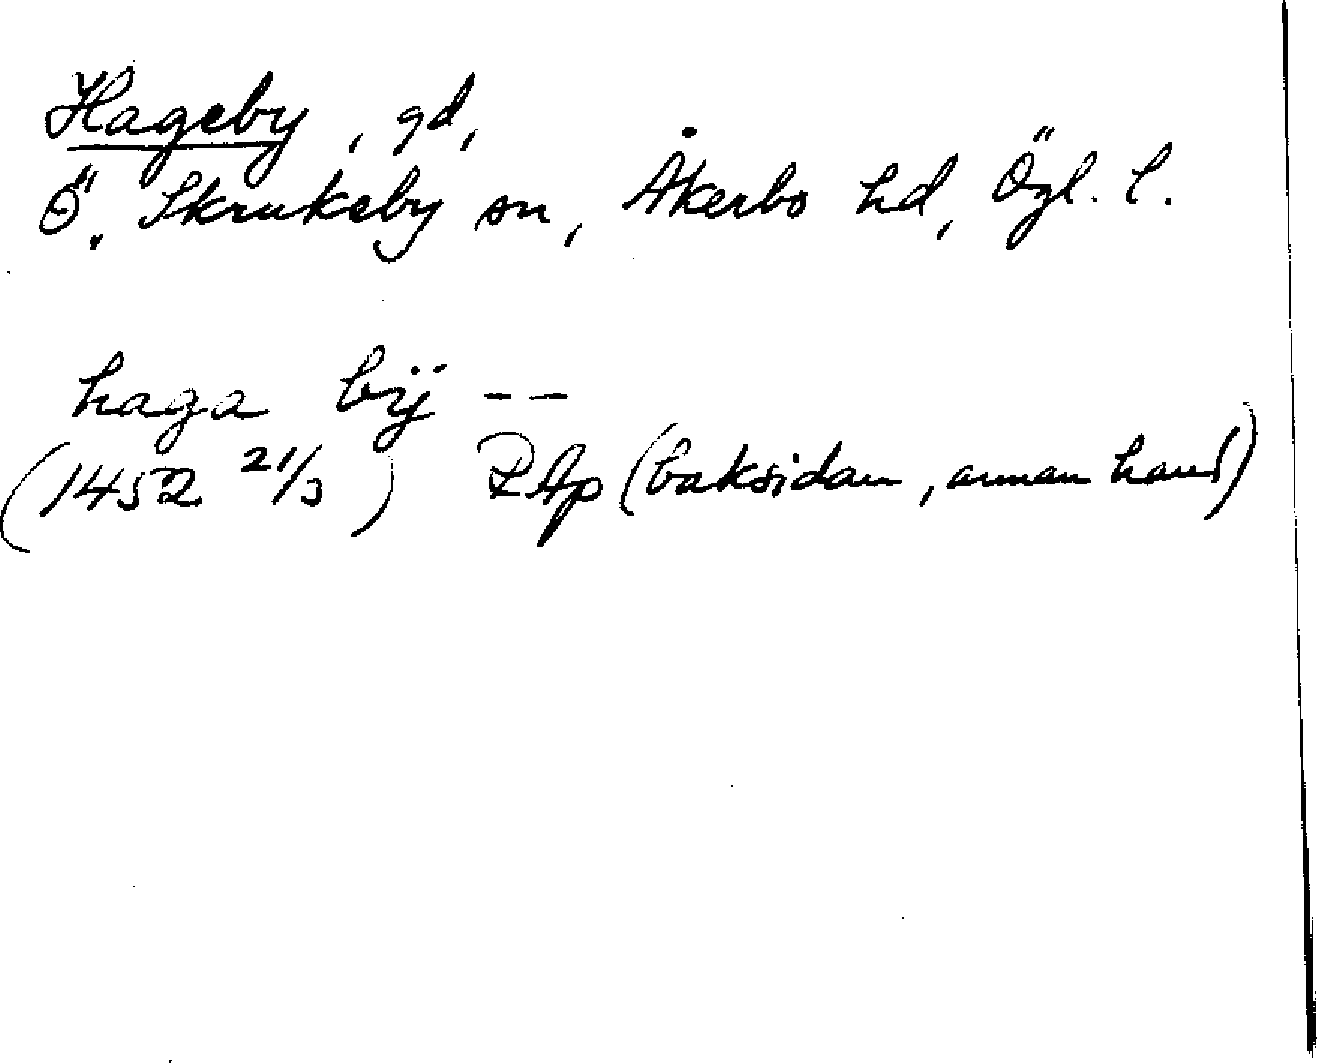 Hageby, gd,
Ö. Skrukeby sn, Åkerbo hd, Ögl. l.
haga bÿ --
(1452 21/3) RAp (baksidan, annan hand)